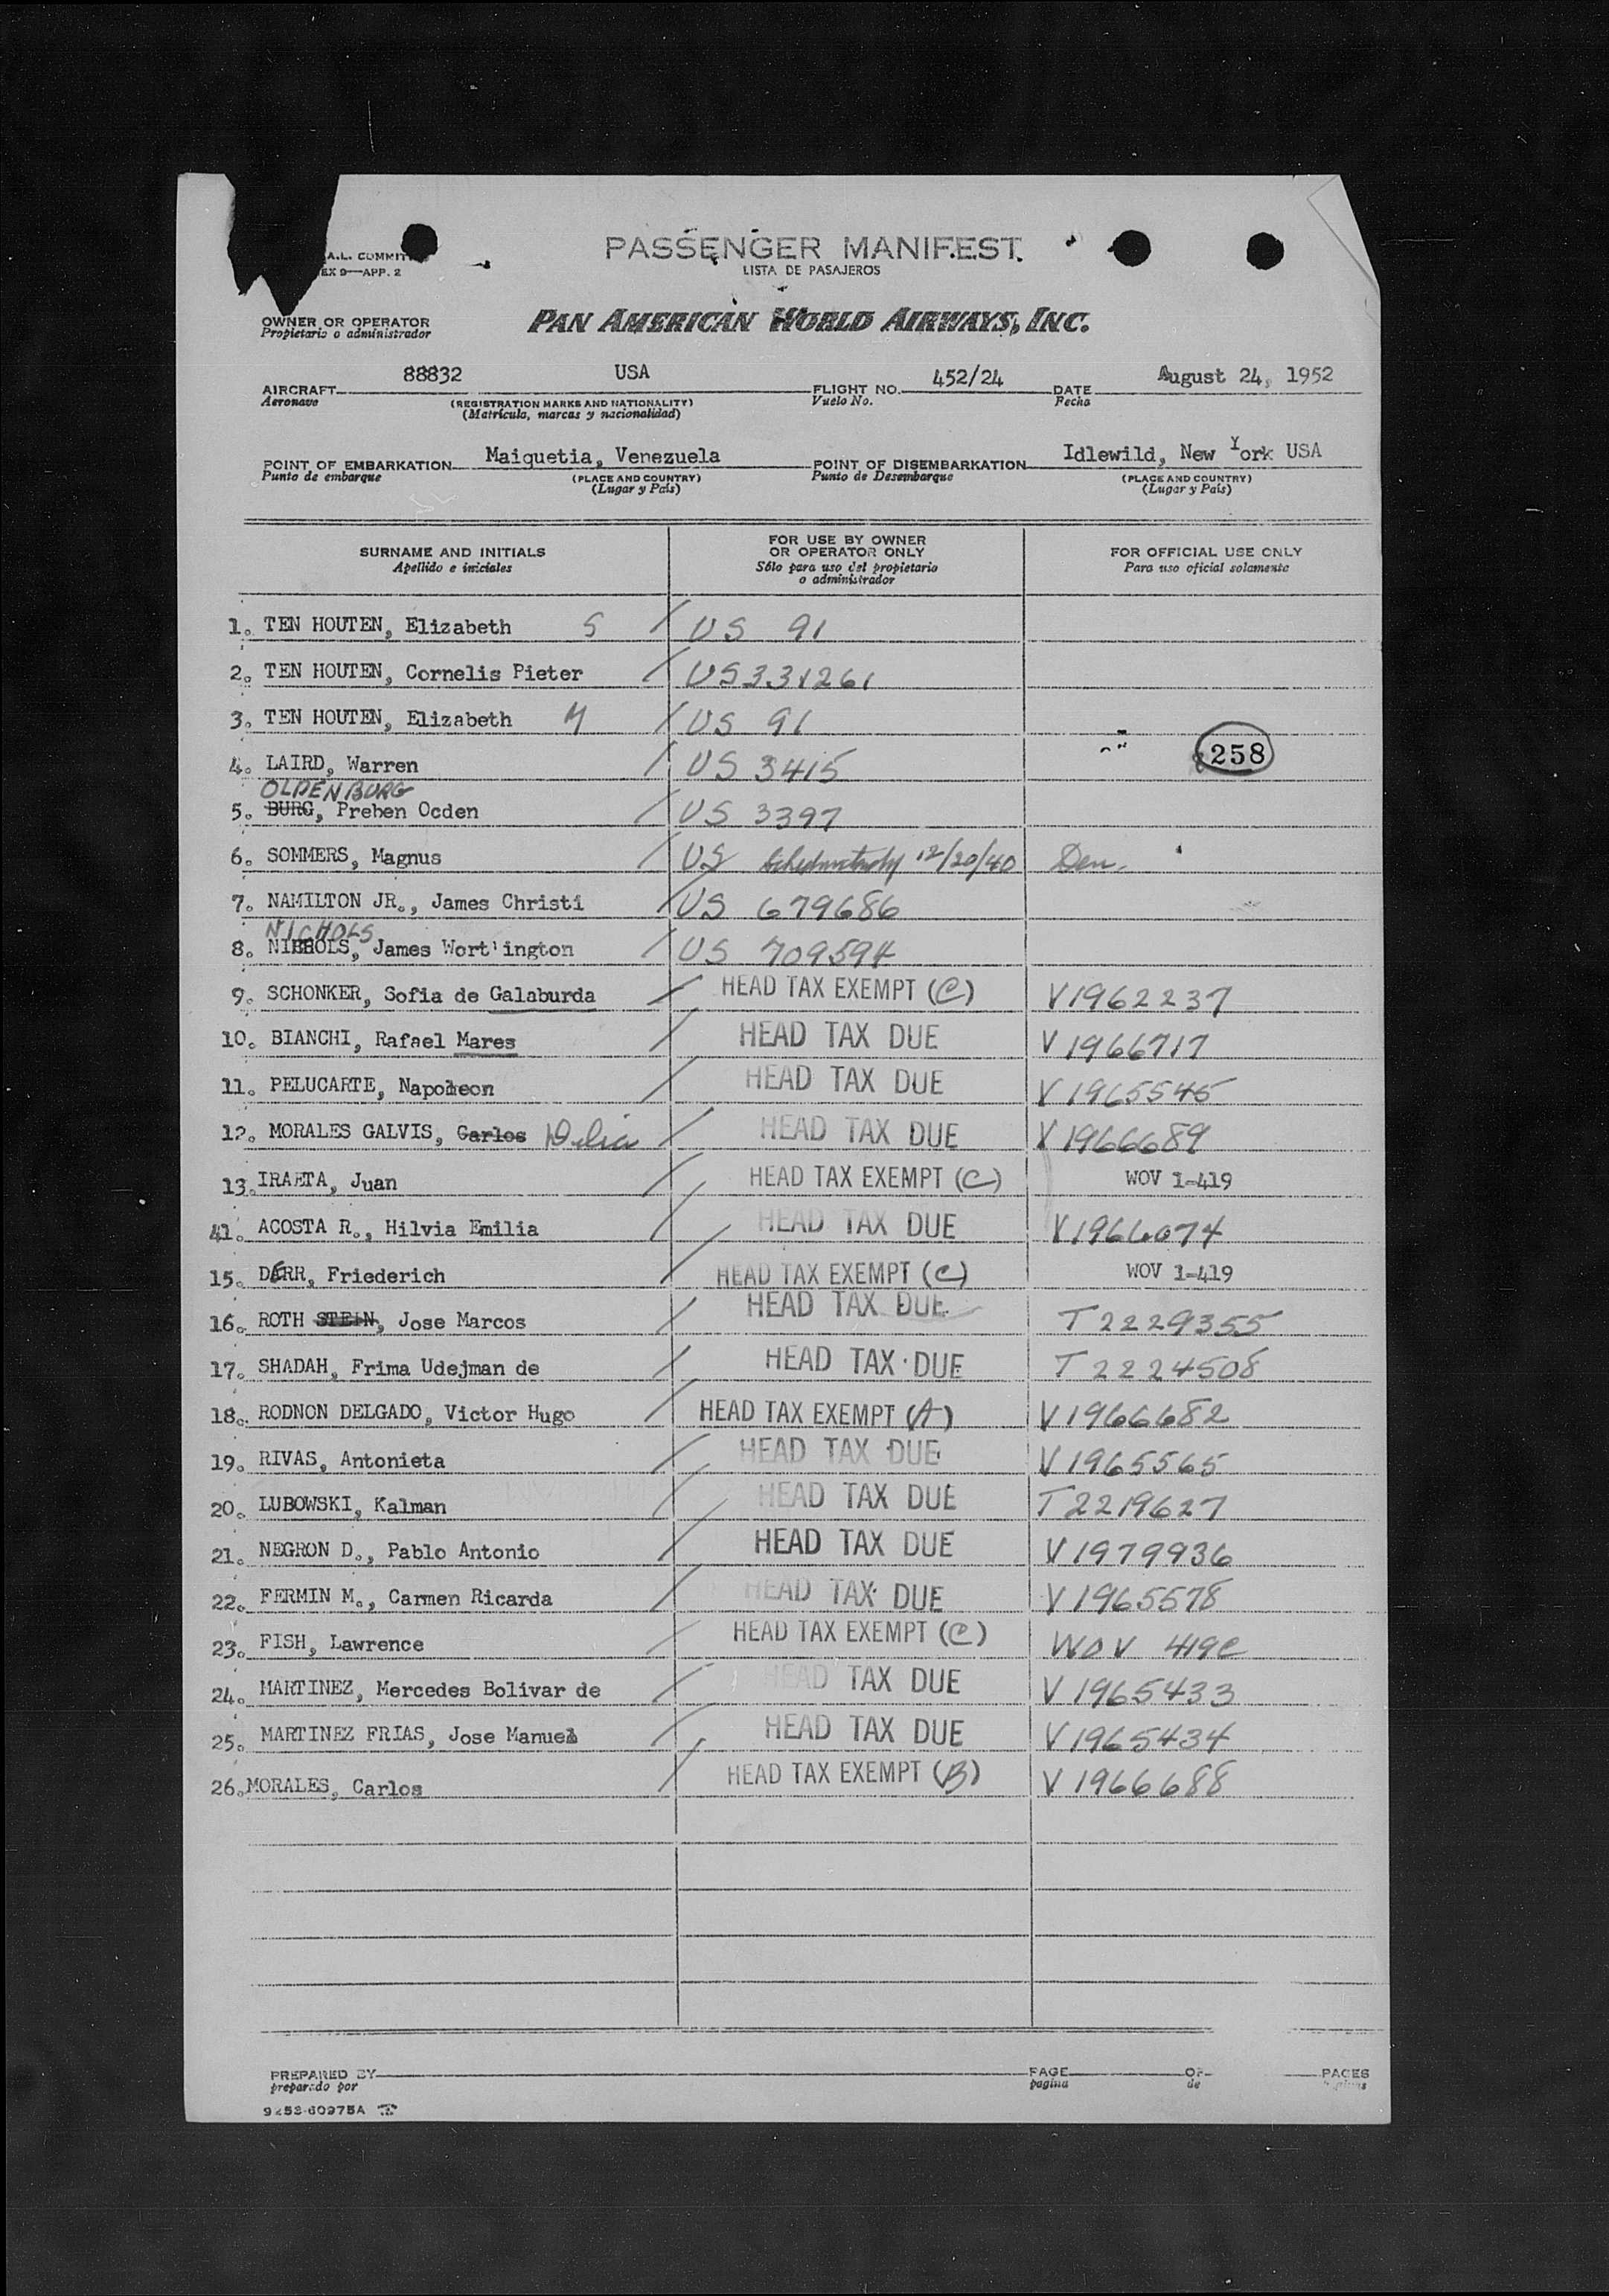 A.L. COMMIT
EX 9—APP. 2
PASSENGER MANIFEST
LISTA DE PASAJEROS
OWNER OR OPERATOR
Propietario o administrador
PAN AMERICAN WORLD AIRWAYS, INC.
AIRCRAFT 88832 USA FLIGHT NO. 452/24 DATE August 24, 1952
Aeronave (REGISTRATION MARKS AND NATIONALITY) Vuelo No. Fecha
(Matrícula, marcas y nacionalidad)
POINT OF EMBARKATION Maiquetia, Venezuela POINT OF DISEMBARKATION Idlewild, New York USA
Punto de embarque (PLACE AND COUNTRY) Punto de Desembarque (PLACE AND COUNTRY)
(Lugar y País) (Lugar y País)
SURNAME AND INITIALS
Apellido e iniciales
FOR USE BY OWNER
OR OPERATOR ONLY
Sólo para uso del propietario
o administrador
FOR OFFICIAL USE ONLY
Para uso oficial solamente
1. TEN HOUTEN, Elizabeth S / US 91
2. TEN HOUTEN, Cornelis Pieter / US 331261
3. TEN HOUTEN, Elizabeth M / US 91
258
4. LAIRD, Warren / US 3415
OLDENBURG
5. BURG, Preben Ocden / US 3397
6. SOMMERS, Magnus / US 12/20/40 Den.
7. NAMILTON JR., James Christi / US 679686
NICHOLS
8. NIEHOLS, James Wort'ington / US 709594
9. SCHONKER, Sofia de Galaburda / HEAD TAX EXEMPT (C) V1962237
10. BIANCHI, Rafael Mares / HEAD TAX DUE V1966717
11. PELUCARTE, Napoleon / HEAD TAX DUE V1965545
12. MORALES GALVIS, Carlos Delia / HEAD TAX DUE V1966689
13. IRAETA, Juan / HEAD TAX EXEMPT (C) WOV 1-419
41. ACOSTA R., Hilvia Emilia / HEAD TAX DUE V1966074
15. DERR, Friederich / HEAD TAX EXEMPT (C) WOV 1-419
16. ROTH STEIN, Jose Marcos / HEAD TAX DUE T2229355
17. SHADAH, Frima Udejman de / HEAD TAX DUE T2224508
18. RODNON DELGADO, Victor Hugo / HEAD TAX EXEMPT (A) V1966682
19. RIVAS, Antonieta / HEAD TAX DUE V1965565
20. LUBOWSKI, Kalman / HEAD TAX DUE T2219627
21. NEGRON D., Pablo Antonio / HEAD TAX DUE V1979936
22. FERMIN M., Carmen Ricarda / HEAD TAX DUE V1965578
23. FISH, Lawrence / HEAD TAX EXEMPT (C) WOV 419C
24. MARTINEZ, Mercedes Bolivar de / HEAD TAX DUE V1965433
25. MARTINEZ FRIAS, Jose Manuel / HEAD TAX DUE V1965434
26. MORALES, Carlos / HEAD TAX EXEMPT (B) V1966688
PREPARED BY PAGE OF PAGES
preparado por pagina de
9253-60975A